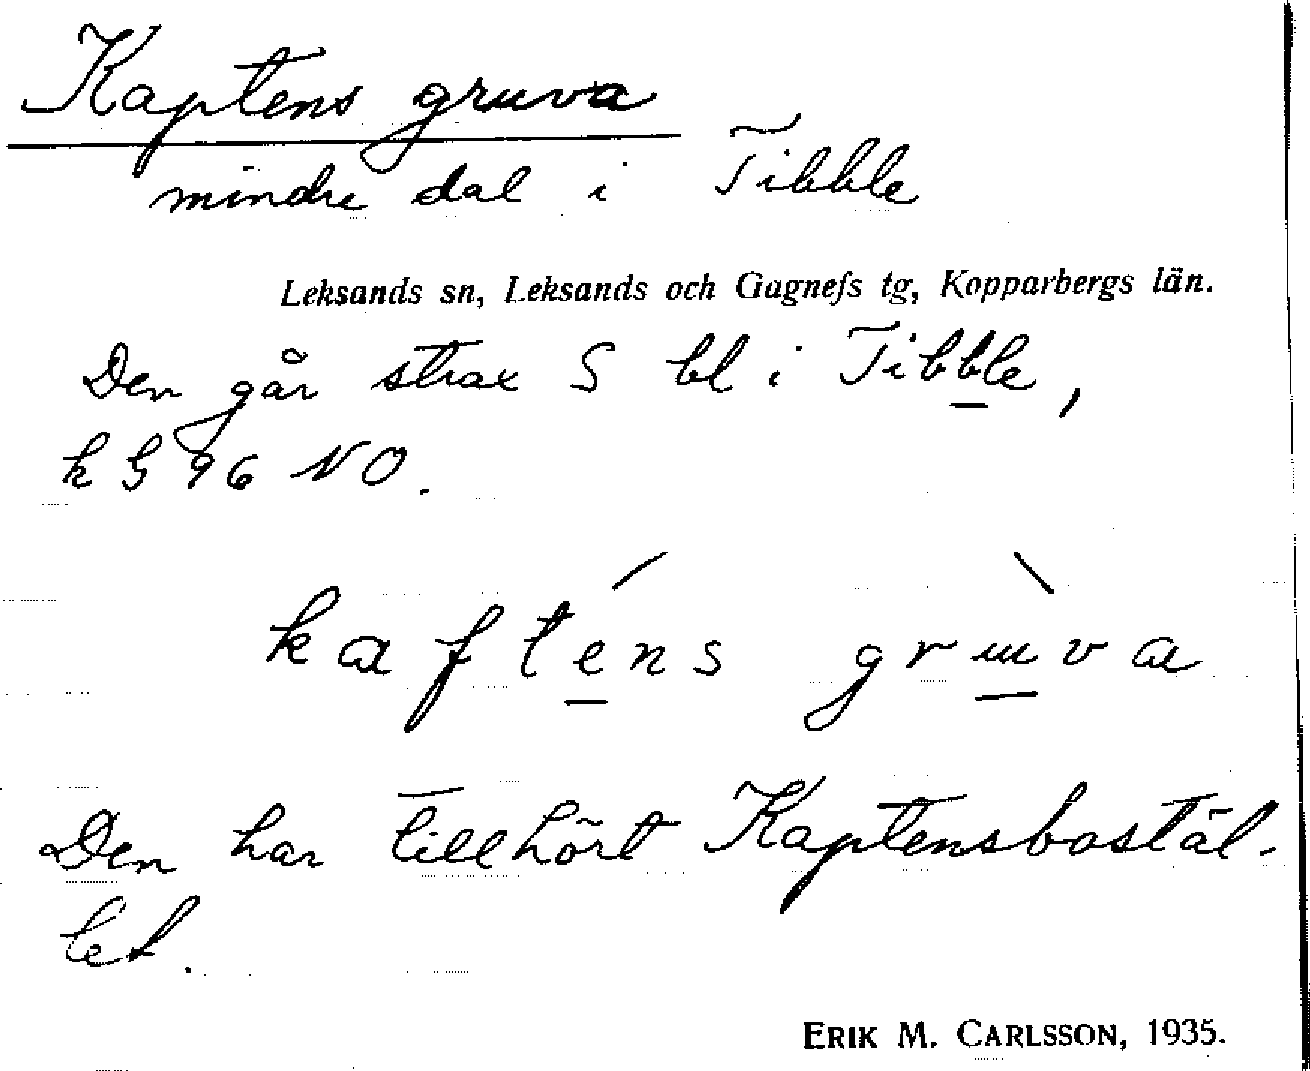 Kaptens gruva
mindre dal i Tibble
Leksands sn, Leksands och Gagnefs tg, Kopparbergs län.
Den går strax S bl i Tibble,
k G 96 NO.
kafténs grùva
Den har tillhört Kaptensbostäl-
let.
ERIK M. CARLSSON, 1935.